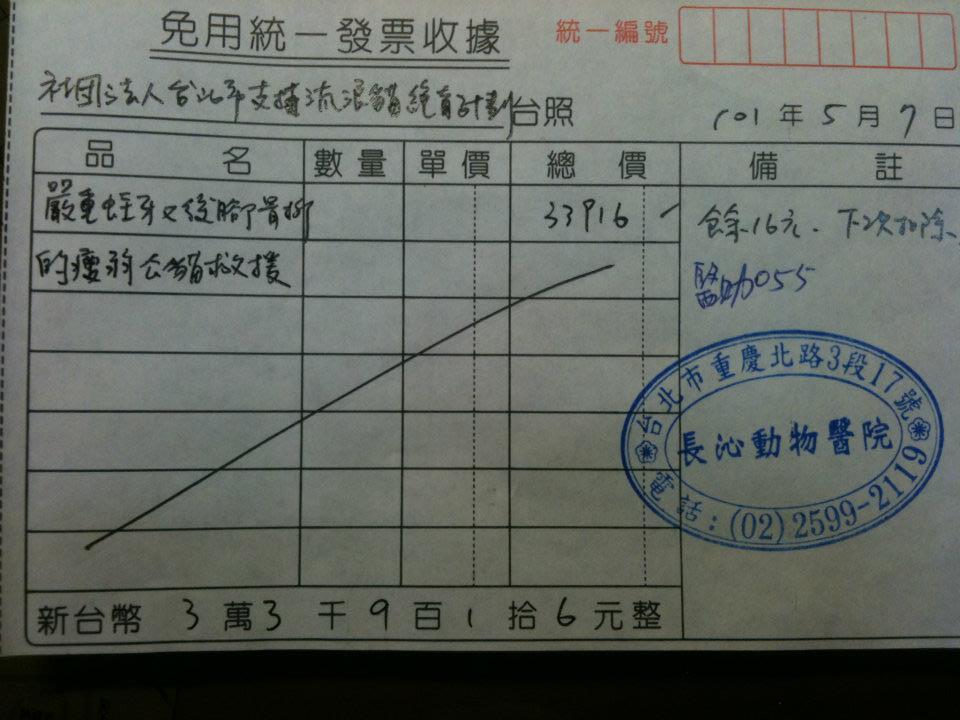 免用統一發票收據
統一編號
社团法人台北市支持流浪貓絕育計劃台照
101年5月7日
品名 數量 單價 總價 備註
嚴重蛀牙及後腳骨折 33916 餘16元.下次扣除
的瘦弱公貓救援
醫助055
台北市重慶北路3段17號
長沁動物醫院
電話:(02)2599-2119
新台幣 3萬3千9百1拾6元整